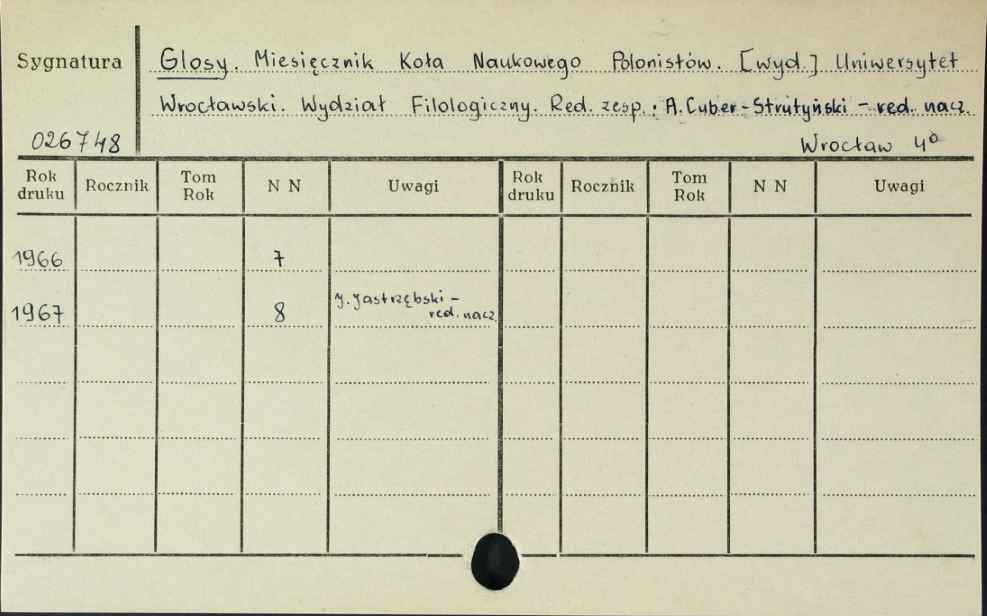 Sygnatura
Glosy. Miesięcznik Koła Naukowego Polonistów. [wyd.] Uniwersytet
Wrocławski. Wydział Filologiczny. Red. zesp.: A. Cuber-Strutyński - red. nacz.
026748
Wrocław 4°
Rok druku Rocznik Tom Rok N N Uwagi Rok druku Rocznik Tom Rok N N Uwagi
1966 7
1967 8 J. Jastrzębski -
red. nacz.